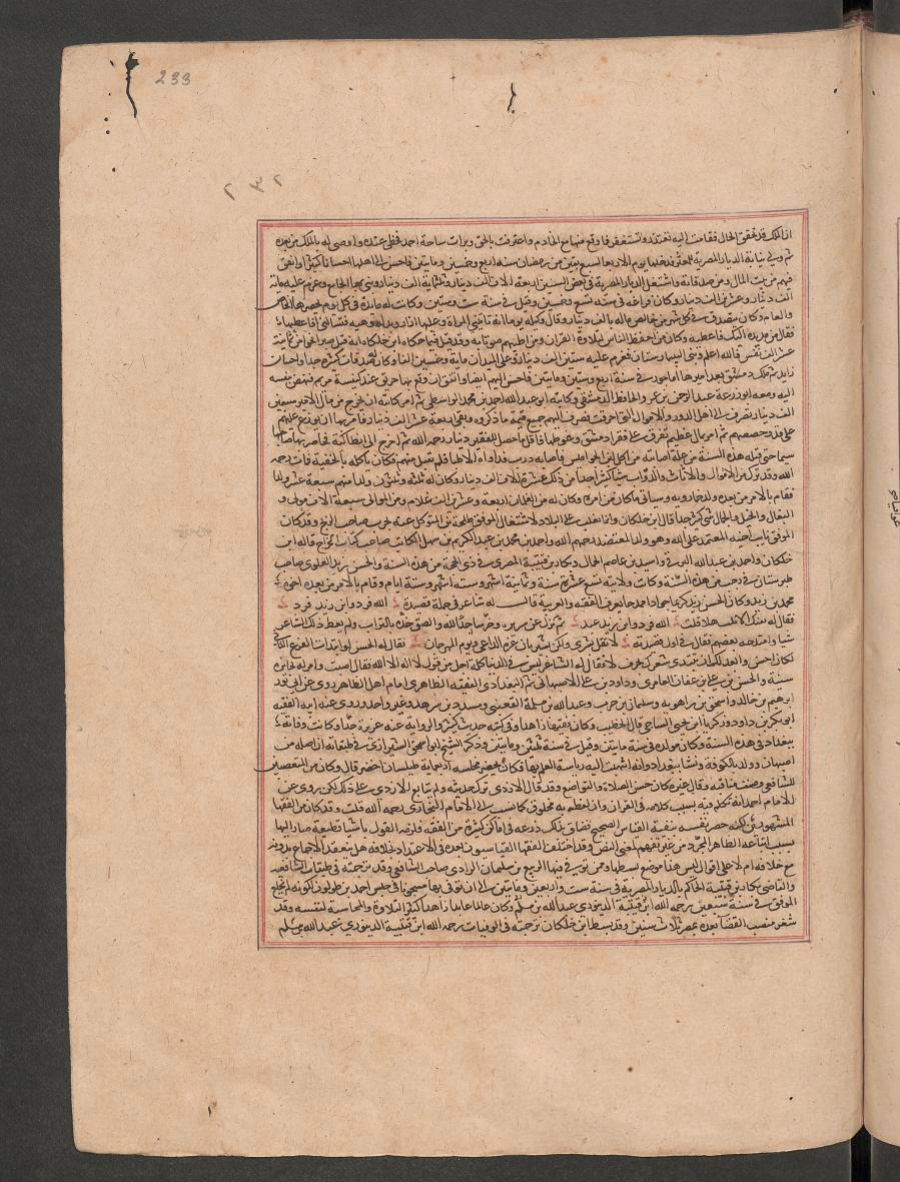 233
٢٣٢
ان الملك قد تحقق الحال فقامت اليه تعتذر وتستغفر مما وقع منها مع الخادم واعترفت بالحق وبرات ساحة احمد فحظي عنده واوصى له بالملك من بعده
ثم ولي نيابة الديار المصرية للمعتز فدخلها يوم الاربعا لسبع بقين من رمضان سنة اربع وخمسين ومايتين فاحسن الى اهلها احسانا كثيرا وانفق
فيهم من بيت المال ومن صدقاته واستغل الديار المصرية في بعض السنين اربعة الاف الف دينار وثلثماية الف دينار وبنى بها الجامع وغرم عليه ماية
الف دينار وعشرين الف دينار وكان فراغه في سنة تسع وخمسين وقيل في سنة ست وستين وكانت له مايدة في كل يوم يحضرها الخاص
والعام وكان يتصدق في كل شهر من خالص ماله بالف دينار وقال وكيله يوما انه تاتيني المراة وعليها الازار ولها هيه فتسالني افاعطيها
فقال من مد يده اليك فاعطه وكان من احفظ الناس لتلاوة القران ومن اطيبهم صوتا به وقد قيل فيما حكاه ابن خلكان انه قتل صبرا نحوا من ثمانية
عشر الف نفس فالله اعلم وبنى البيمارستان فغرم عليه ستين الف دينار وعلى الميدان ماية وخمسين الفا وكان له صدقات كثيرة جدا واحسان
زايد ثم ملك دمشق بعد اميرها اماجور في سنة اربع وستين ومايتين فاحسن اليهم ايضا واتفق ان وقع بها حريق عند كنيسة مريم فنهض بنفسه
اليه ومعه ابو زرعة عبد الرحمن بن عمرو الحافظ الدمشقي وكاتبه ابو عبد الله احمد بن محمد الواسطي ثم امر كاتبه ان يخرج من ماله الامير سبعين
الف دينار تصرف الى اهل الدور والاموال التي احرقت فصرف اليهم جميع قيمة ما ذكروه وبقي اربعة عشر الف دينار فامر بها ان توزع عليهم
على قدر حصصهم ثم امر بمال عظيم يفرق على فقرا دمشق وغوطتها فاقل ما حصل للفقير دينار رحمه الله ثم خرج الى انطاكية فحاصر بها صاحبها
سيما حتى قتله هذه السنة من علة اصابته من اكل لبن الجواميس فاصابه درب فداواه الاطبا فلم تقبل منهم فكان ياكل به بالخفية فمات رحمه
الله وقد ترك من الاموال والاثاث والدواب شيا كثيرا جدا من ذلك عشرة الاف الف دينار وكان له ثلثة وثلثون ولدا منهم سبعة عشر ولدا
فقام بالامر من بعده ولده خمارويه وسياتي ما كان من امره وكان له من الغلمان اربعة وعشرين الف غلام ومن الموالي سبعة الاف مولى و
البغال والخيل والجمال شي كثير جدا قال ابن خلكان وانما تغلب على البلاد لاشتغال الموفق طلحة بن المتوكل عنه بحرب صاحب الزنج وقد كان
الموفق نايب اخيه المعتمد على الله وهو ولد المعتضد رحمهم الله واحمد بن محمد بن عبد الكريم بن سهل الكاتب صاحب كتاب الخراج قاله ابن
خلكان واحمد بن عبد الله البرقي واسيد بن عاصم الجمال وبكار بن قتيبة المصري في ذي الحجة من هذه السنة والحسن بن زيد العلوي صاحب
طبرستان في رجب من هذه السنة وكانت ولايته تسع عشرة سنة وثمانية اشهر وستة ايام وقام بالامر من بعده اخوه
محمد بن زيد وكان الحسن بن زيد كريما جوادا ممدحا يعرف الفقه والعربية قال له شاعر في جملة قصيدة الله فرد وابن زيد فرد
فقال له بفيك الاثلب هلا قلت الله فرد وابن زيد عبد ثم نزل عن سريره وخر ساجدا لله والصق خده بالتراب ولم يعط ذلك الشاعر
شيا وامتدحه بعضهم فقال في اول قصيدته لا تقل بشرى ولكن بشريان غرة الداعي ويوم المهرجان فقال له الحسن لو ابتدات بالمصراع الثاني
لكان احسن وابعد لك ان تبتدي شعرك بحرف لا فقال له الشاعر ليس في الدنيا كلمة اجل من قول لا اله الا الله فقال اصبت وامر له بجايزة
سنية والحسن بن علي بن عفان العامري وداود بن علي الاصبهاني ثم البغدادي الفقيه الظاهري امام اهل الظاهر روى عن ابي ثور
ابرهيم بن خالد واسحق بن راهويه وسليمان بن حرب وعبد الله بن مسلمة القعنبي ومسدد بن مسرهد وغير واحد وروى عنه ابنه الفقيه
ابو بكر بن داود وزكريا بن يحيى الساجي قال الخطيب وكان فقيها زاهدا وفي كتبه حديث كثير والرواية عنه عزيزة جدا وكانت وفاته
ببغداد في هذه السنة وكان مولده في سنة مايتين وقيل في سنة ثنتين ومايتين وذكر الشيخ ابو اسحق الشيرازي في طبقاته ان اصله من
اصبهان وولد بالكوفة ونشا ببغداد وانه انتهت اليه رياسة العلم بها وكان يحضر مجلسه اربعماية طيلسان اخضر قال وكان من المتعصبين
للشافعي وصنف مناقبه وقال غيره كان حسن الصلاة والتواضع وقد قال الازدي ترك حديثه ولم يتابع الازدي على ذلك لكن روي عن
الامام احمد انه تكلم فيه بسبب كلامه في القران وان لفظه به مخلوق كما نسب الى الامام البخاري رحمه الله قلت وقد كان من الفقها
المشهورين لكنه حصر نفسه بنفيه القياس الصحيح فضاق بذلك ذرعه في اماكن كثيرة من الفقه فلزمه القول باشيا فظيعة صار اليها
بسبب اتباعه الظاهر المجرد من غير تفهم لمعنى النص وقد اختلف الفقها القياسيون بعده في الاعتداد بخلافه هل ينعقد الاجماع بدونه
مع خلافه ام لا على اقوال ليس هذا موضع بسطها وممن توفي فيها الربيع بن سليمان المرادي صاحب الشافعي وقد ترجمته في طبقات الشافعية
والقاضي بكار بن قتيبة الحاكم بالديار المصرية في سنة ست واربعين ومايتين الى ان توفي بها مسجونا في حبس احمد بن طولون لكونه لم يخلع
الموفق في سنة سبعين رحمه الله ابن قتيبة الدينوري عبد الله بن مسلم وكان عالما عابدا زاهدا كثير التلاوة والمحاسبة لنفسه وقد
شغر منصب القضا بعده بمصر ثلاث سنين وقد بسط ابن خلكان ترجمته في الوفيات رحمه الله ابن قتيبة الدينوري عبد الله بن مسلم